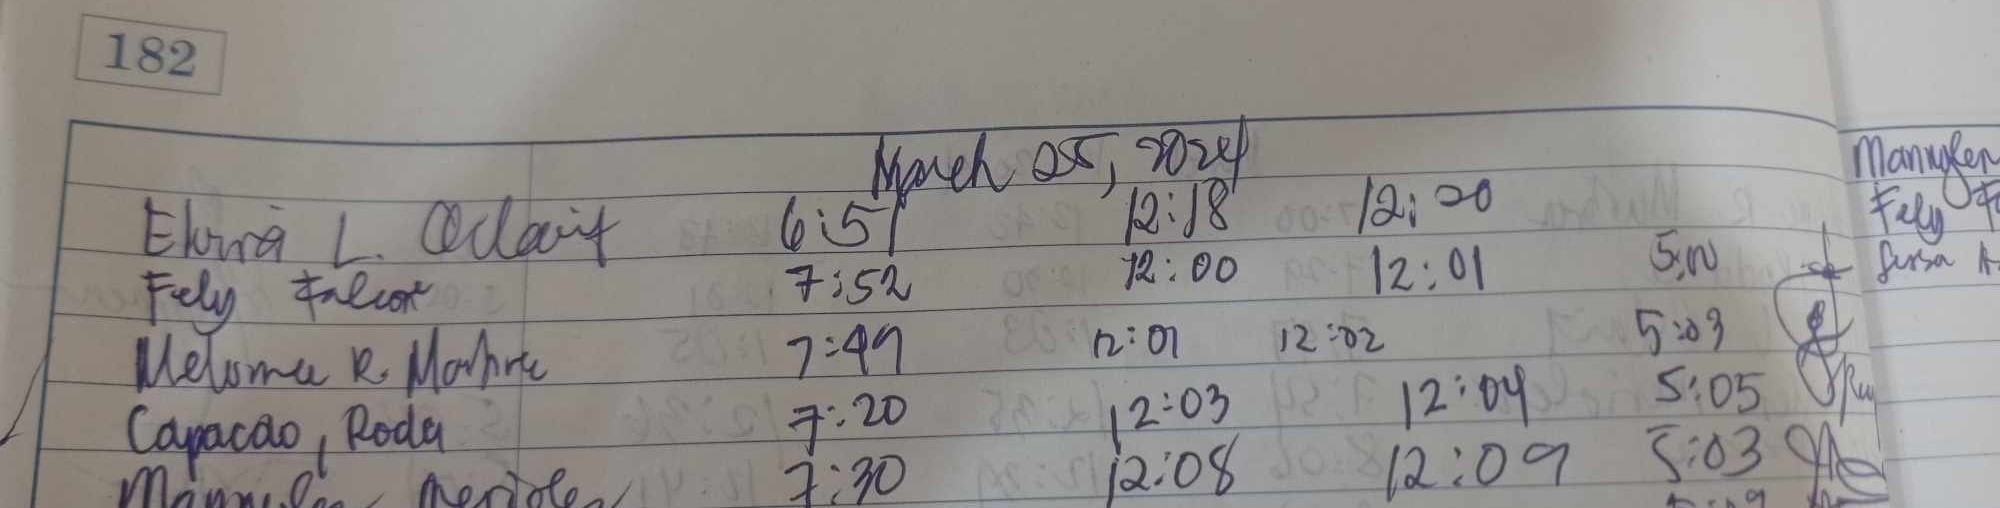 182
March 25, 2024
Elvira L. 6:51 12:18 12:20
Fely Falcon 7:52 12:00 12:01 5:00
R. 7:49 12:01 12:02 5:03
Capacao, Roda 7:20 12:03 12:04 5:05
7:30 12:08 12:09 5:03
Fely